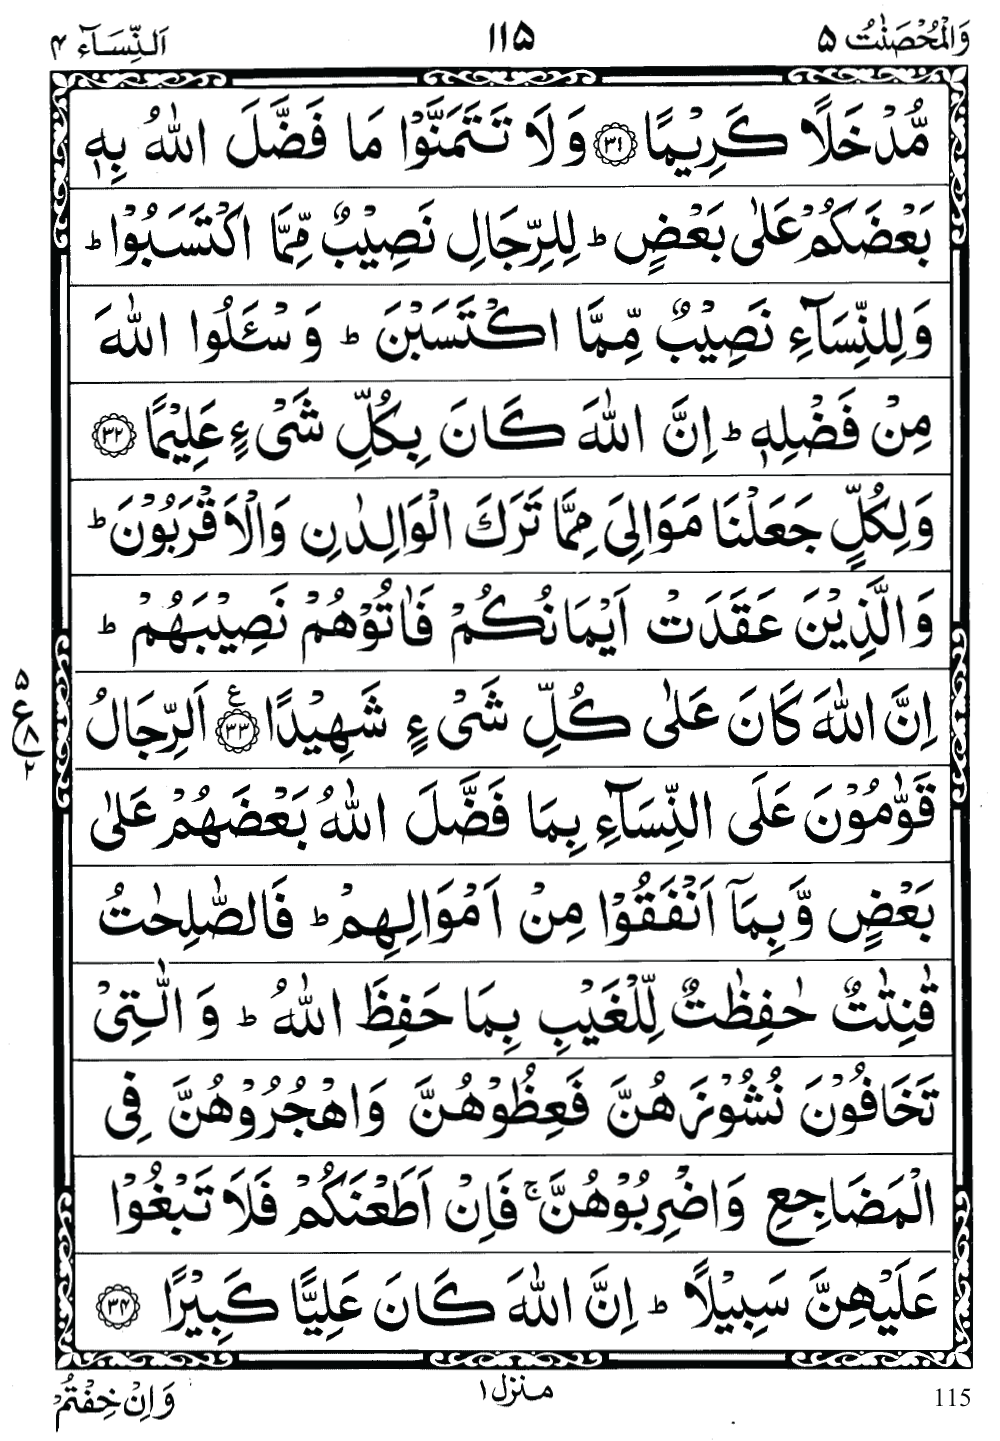 وَالْمُحْصَنٰتُ ۵ ۱۱۵ اَلنِّسَآء ۴
مُّدْخَلًا كَرِيْمًا ۳۱ وَلَا تَتَمَنَّوْا مَا فَضَّلَ اللّٰهُ بِهٖ
بَعْضَكُمْ عَلٰى بَعْضٍ ؕ لِلرِّجَالِ نَصِيْبٌ مِّمَّا اكْتَسَبُوْا ؕ
وَلِلنِّسَآءِ نَصِيْبٌ مِّمَّا اكْتَسَبْنَ ؕ وَسْـَٔلُوا اللّٰهَ
مِنْ فَضْلِهٖ ؕ اِنَّ اللّٰهَ كَانَ بِكُلِّ شَىْءٍ عَلِيْمًا ۳۲
وَلِكُلٍّ جَعَلْنَا مَوَالِىَ مِمَّا تَرَكَ الْوَالِدٰنِ وَالْاَقْرَبُوْنَ ؕ
وَالَّذِيْنَ عَقَدَتْ اَيْمَانُكُمْ فَاٰتُوْهُمْ نَصِيْبَهُمْ ؕ
اِنَّ اللّٰهَ كَانَ عَلٰى كُلِّ شَىْءٍ شَهِيْدًا ۳۳ ع اَلرِّجَالُ
۵
ع
۸
۲
قَوّٰمُوْنَ عَلَى النِّسَآءِ بِمَا فَضَّلَ اللّٰهُ بَعْضَهُمْ عَلٰى
بَعْضٍ وَّبِمَآ اَنْفَقُوْا مِنْ اَمْوَالِهِمْ ؕ فَالصّٰلِحٰتُ
قٰنِتٰتٌ حٰفِظٰتٌ لِّلْغَيْبِ بِمَا حَفِظَ اللّٰهُ ؕ وَالّٰتِىْ
تَخَافُوْنَ نُشُوْزَهُنَّ فَعِظُوْهُنَّ وَاهْجُرُوْهُنَّ فِى
الْمَضَاجِعِ وَاضْرِبُوْهُنَّ ۚ فَاِنْ اَطَعْنَكُمْ فَلَا تَبْغُوْا
عَلَيْهِنَّ سَبِيْلًا ؕ اِنَّ اللّٰهَ كَانَ عَلِيًّا كَبِيْرًا ۳۴
115 منزل ۱ وَاِنْ خِفْتُمْ